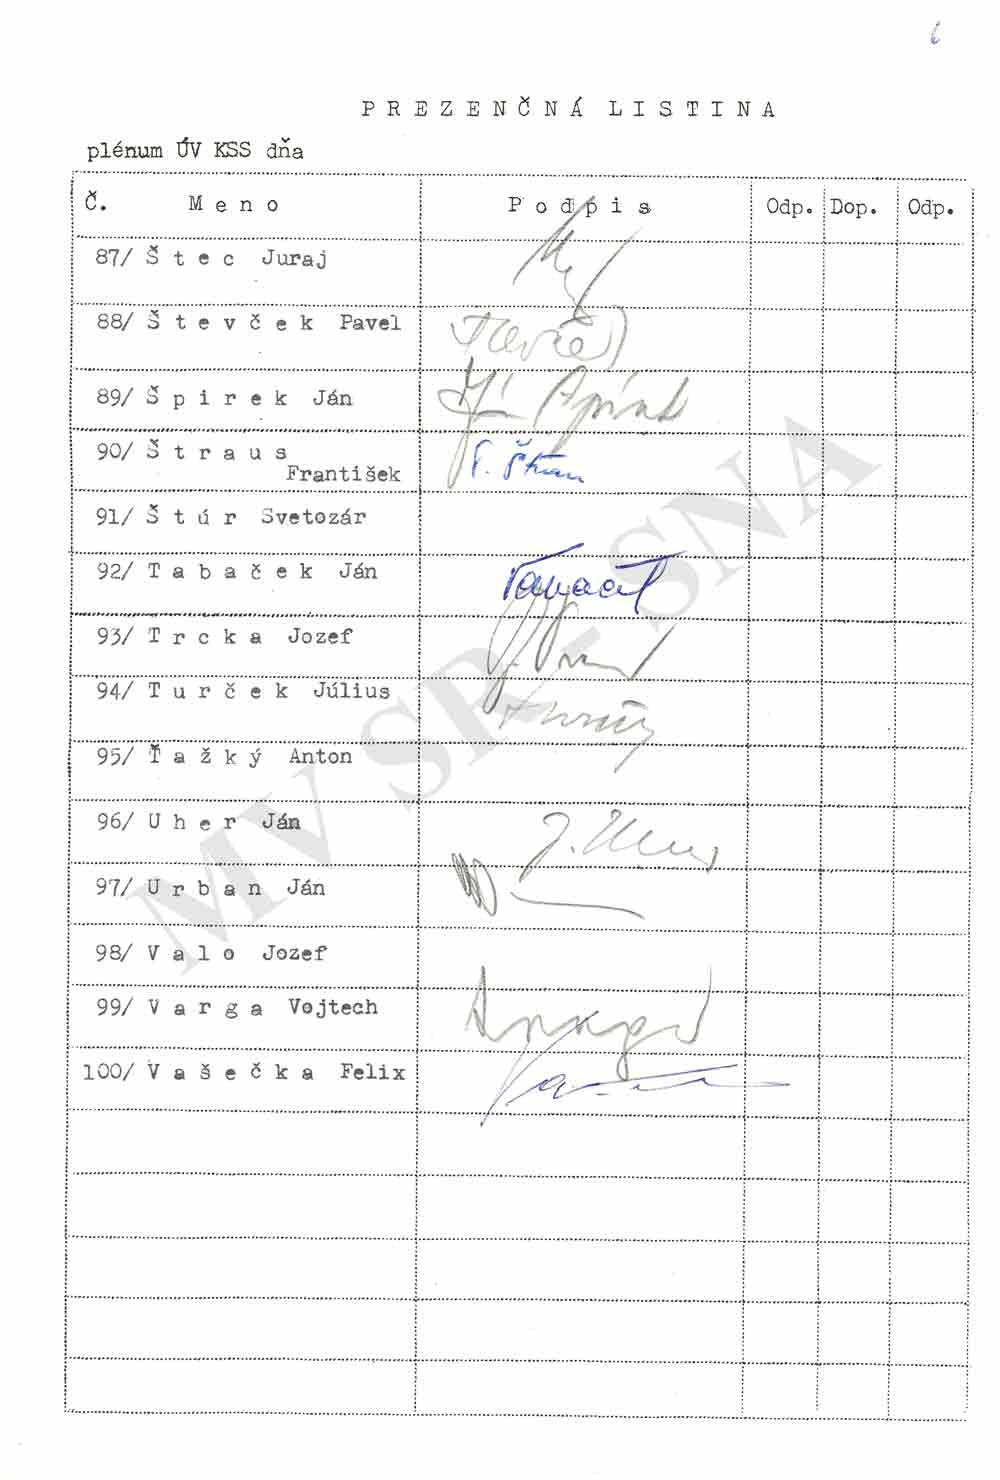 6
PREZENČNÁ LISTINA
plénum ÚV KSS dňa
Č. Meno Podpis Odp. Dop. Odp.
87/ Štec Juraj
88/ Števček Pavel
89/ Špirek Ján
90/ Štraus
František
91/ Štúr Svetozár
92/ Tabaček Ján
93/ Trcka Jozef
94/ Turček Július
95/ Ťažký Anton
96/ Uher Ján
97/ Urban Ján
98/ Valo Jozef
99/ Varga Vojtech
100/ Vašečka Felix
MV SR - SNA